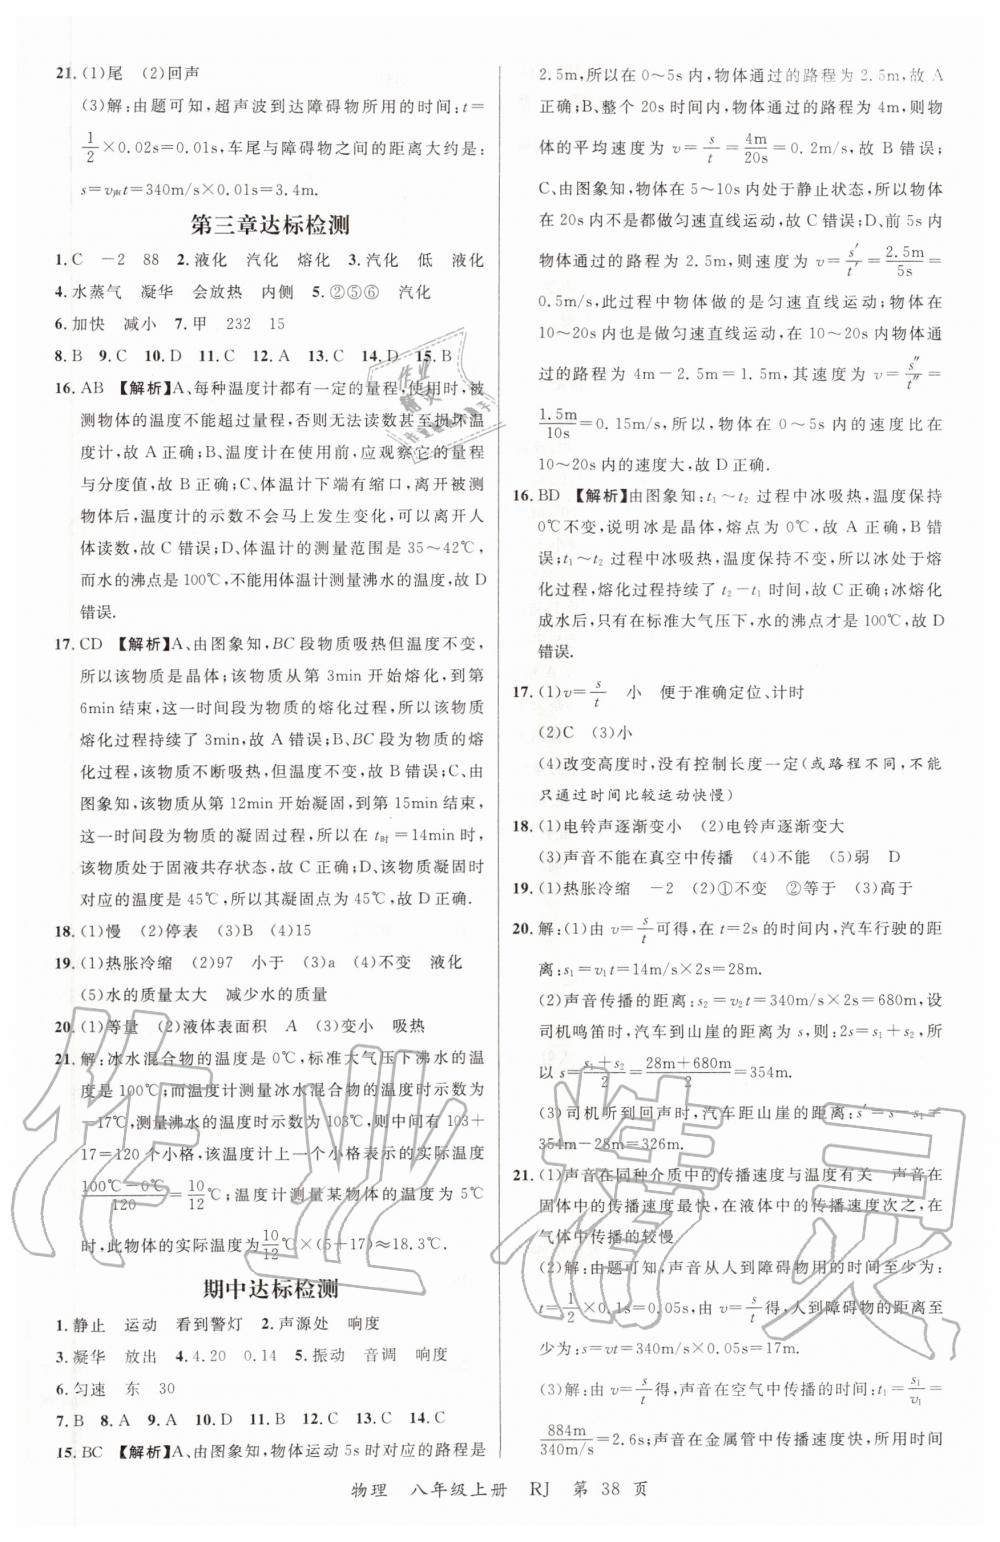 21. (1)尾 (2)回声
(3)解:由题可知,超声波到达障碍物所用的时间:t=
1/2×0.02s=0.01s,车尾与障碍物之间的距离大约是:
s=v声t=340m/s×0.01s=3.4m.
第三章达标检测
1. C −2 88 2. 液化 汽化 熔化 3. 汽化 低 液化
4. 水蒸气 凝华 会放热 内侧 5. ②⑤⑥ 汽化
6. 加快 减小 7. 甲 232 15
8. B 9. C 10. D 11. C 12. C 13. C 14. D 15. B
16. AB 【解析】A、每种温度计都有一定的量程,使用时,被
测物体的温度不能超过量程,否则无法读数甚至损坏温
度计,故 A 正确;B、温度计在使用前,应观察它的量程
与分度值,故 B 正确;C、体温计下端有缩口,离开被测
物体后,温度计的示数不会马上发生变化,可以离开人
体读数,故 C 错误;D、体温计的测量范围是 35~42℃,
而水的沸点是100℃,不能用体温计测量沸水的温度,故 D
错误.
17. CD 【解析】A、由图象知,BC段物质吸热但温度不变,
所以该物质是晶体;该物质从第 3min 开始熔化,到第
6min 结束,这一时间段为物质的熔化过程,所以该物质
熔化过程持续了 3min,故 A 错误;B、BC 段为物质的熔
化过程,该物质不断吸热,但温度不变,故 B 错误;C、由
图象知,该物质从第 12min 开始凝固,到第 15min 结束,
这一时间段为物质的凝固过程,所以在 t时=14min时,
该物质处于固液共存状态,故 C 正确;D、该物质凝固时
对应的温度是 45℃,所以其凝固点是 45℃,故 D 正确.
18. (1)慢 (2)停表 (3)B (4)15
19. (1)热胀冷缩 (2)97 小于 (3)a (4)不变 液化
(5)水的质量太大 减少水的质量
20. (1)等量 (2)液体表面积 A (3)变小 吸热
21. 解:冰水混合物的温度是 0℃,标准大气压下沸水的温
度是 100℃;而温度计测量冰水混合物的温度时示数为
−17℃,测量沸水的温度时示数为 103℃,即在 103+
17=120 个小格,该温度计上一个小格表示的实际温度
(100℃−0℃)/120=10/12℃;温度计测量某物体的温度为 5℃
时,此物体的实际温度为10/12℃×(5+17)≈18.3℃.
期中达标检测
1. 静止 运动 看到警灯 2. 声源处 响度
3. 凝华 放出 4. 4.20 0.14 5. 振动 音调 响度
6. 匀速 东 30
7. B 8. A 9. A 10. D 11. D 12. C 13. C 14. C
15. BC 【解析】A、由图象知,物体运动 5s 时对应的路程是
2.5m,所以在 0~5s 内,物体通过的路程为 2.5m,故 A
正确;B、整个 20s 时间内,物体通过的路程为 4m,则物
体的平均速度为 v=s/t=4m/20s=0.2m/s,故 B 错误;
C、由图象知,物体在 5~10s 内处于静止状态,所以物体
在 20s 内不是都做匀速直线运动,故 C 错误;D、前 5s 内
物体通过的路程为 2.5m,则速度为 v=s′/t′=2.5m/5s=
0.5m/s,此过程中物体做的是匀速直线运动;物体在
10~20s 内也是做匀速直线运动,在 10~20s 内物体通
过的路程为 4m−2.5m=1.5m,其速度为 v=s″/t″=
1.5m/10s=0.15m/s,所以,物体在 0~5s 内的速度比在
10~20s 内的速度大,故 D 正确.
16. BD 【解析】由图象知:t₁~t₂ 过程中冰吸热,温度保持
0℃不变,说明冰是晶体,熔点为 0℃,故 A 正确,B 错
误;t₁~t₂ 过程中冰吸热,温度保持不变,所以冰处于熔
化过程,熔化过程持续了 t₂−t₁ 时间,故 C 正确;冰熔化
成水后,只有在标准大气压下,水的沸点才是 100℃,故 D
错误.
17. (1)v=s/t 小 便于准确定位、计时
(2)C (3)小
(4)改变高度时,没有控制长度一定(或路程不同,不能
只通过时间比较运动快慢)
18. (1)电铃声逐渐变小 (2)电铃声逐渐变大
(3)声音不能在真空中传播 (4)不能 (5)弱 D
19. (1)热胀冷缩 −2 (2)①不变 ②等于 (3)高于
20. 解:(1)由 v=s/t可得,在 t=2s 的时间内,汽车行驶的距
离:s₁=v₁t=14m/s×2s=28m.
(2)声音传播的距离:s₂=v₂t=340m/s×2s=680m,设
司机鸣笛时,汽车到山崖的距离为 s,则:2s=s₁+s₂,所
以 s=(s₁+s₂)/2=(28m+680m)/2=354m.
(3)司机听到回声时,汽车距山崖的距离:s′=s−s₁=
354m−28m=326m.
21. (1)声音在同种介质中的传播速度与温度有关 声音在
固体中的传播速度最快,在液体中的传播速度次之,在
气体中的传播的较慢
(2)解:由题可知,声音从人到障碍物用的时间为:
t=1/2×0.1s=0.05s,由 v=s/t得,人到障碍物的距离至
少为:s=vt=340m/s×0.05s=17m.
(3)解:由 v=s/t得,声音在空气中传播的时间:t₁=s₁/v₁=
884m/340m/s=2.6s;声音在金属管中传播速度快,所用时间
物理 八年级上册 RJ 第 38 页
作业精灵
作业
精灵